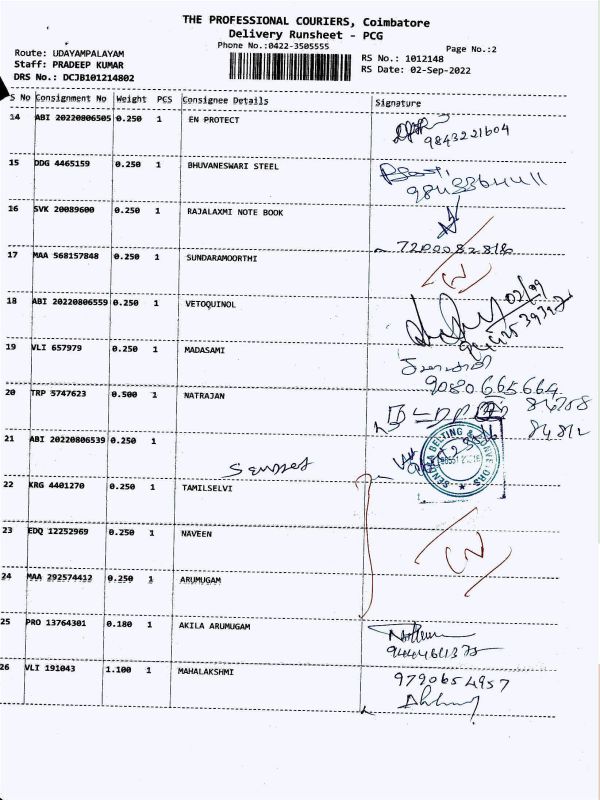 THE PROFESSIONAL COURIERS, Coimbatore
Delivery Runsheet - PCG
Phone No.:0422-3505555
Page No.:2
Route: UDAYAMPALAYAM
Staff: PRADEEP KUMAR
DRS No.: DCJB101214802
RS No.: 1012148
RS Date: 02-Sep-2022
S No Consignment No Weight PCS Consignee Details Signature
14 ABI 20220806505 0.250 1 EN PROTECT
9843221604
15 DDG 4465159 0.250 1 BHUVANESWARI STEEL
16 SVK 20089600 0.250 1 RAJALAXMI NOTE BOOK
7200082818
17 MAA 568157848 0.250 1 SUNDARAMOORTHI
18 ABI 20220806559 0.250 1 VETOQUINOL
02/09
19 VLI 657979 0.250 1 MADASAMI
9080665664
20 TRP 5747623 0.500 1 NATRAJAN
84812
21 ABI 20220806539 0.250 1
22 KRG 4401270 0.250 1 TAMILSELVI
23 EDQ 12252969 0.250 1 NAVEEN
24 MAA 292574412 0.250 1 ARUMUGAM
25 PRO 13764301 0.180 1 AKILA ARUMUGAM
26 VLI 191043 1.100 1 MAHALAKSHMI
9790654957